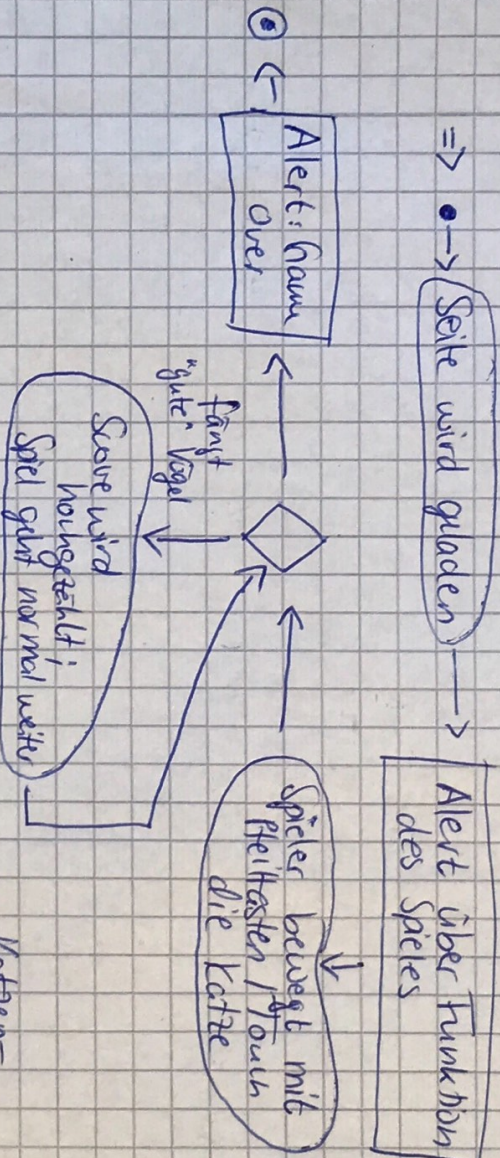 Seite wird geladen
Alert über Funktion
des Spieles
Spieler bewegt mit
Pfeiltasten / Touch
die Katze
Alert: Game
Over
fängt
"gute" Vögel
Score wird
hochgezählt;
Spiel geht normal weiter